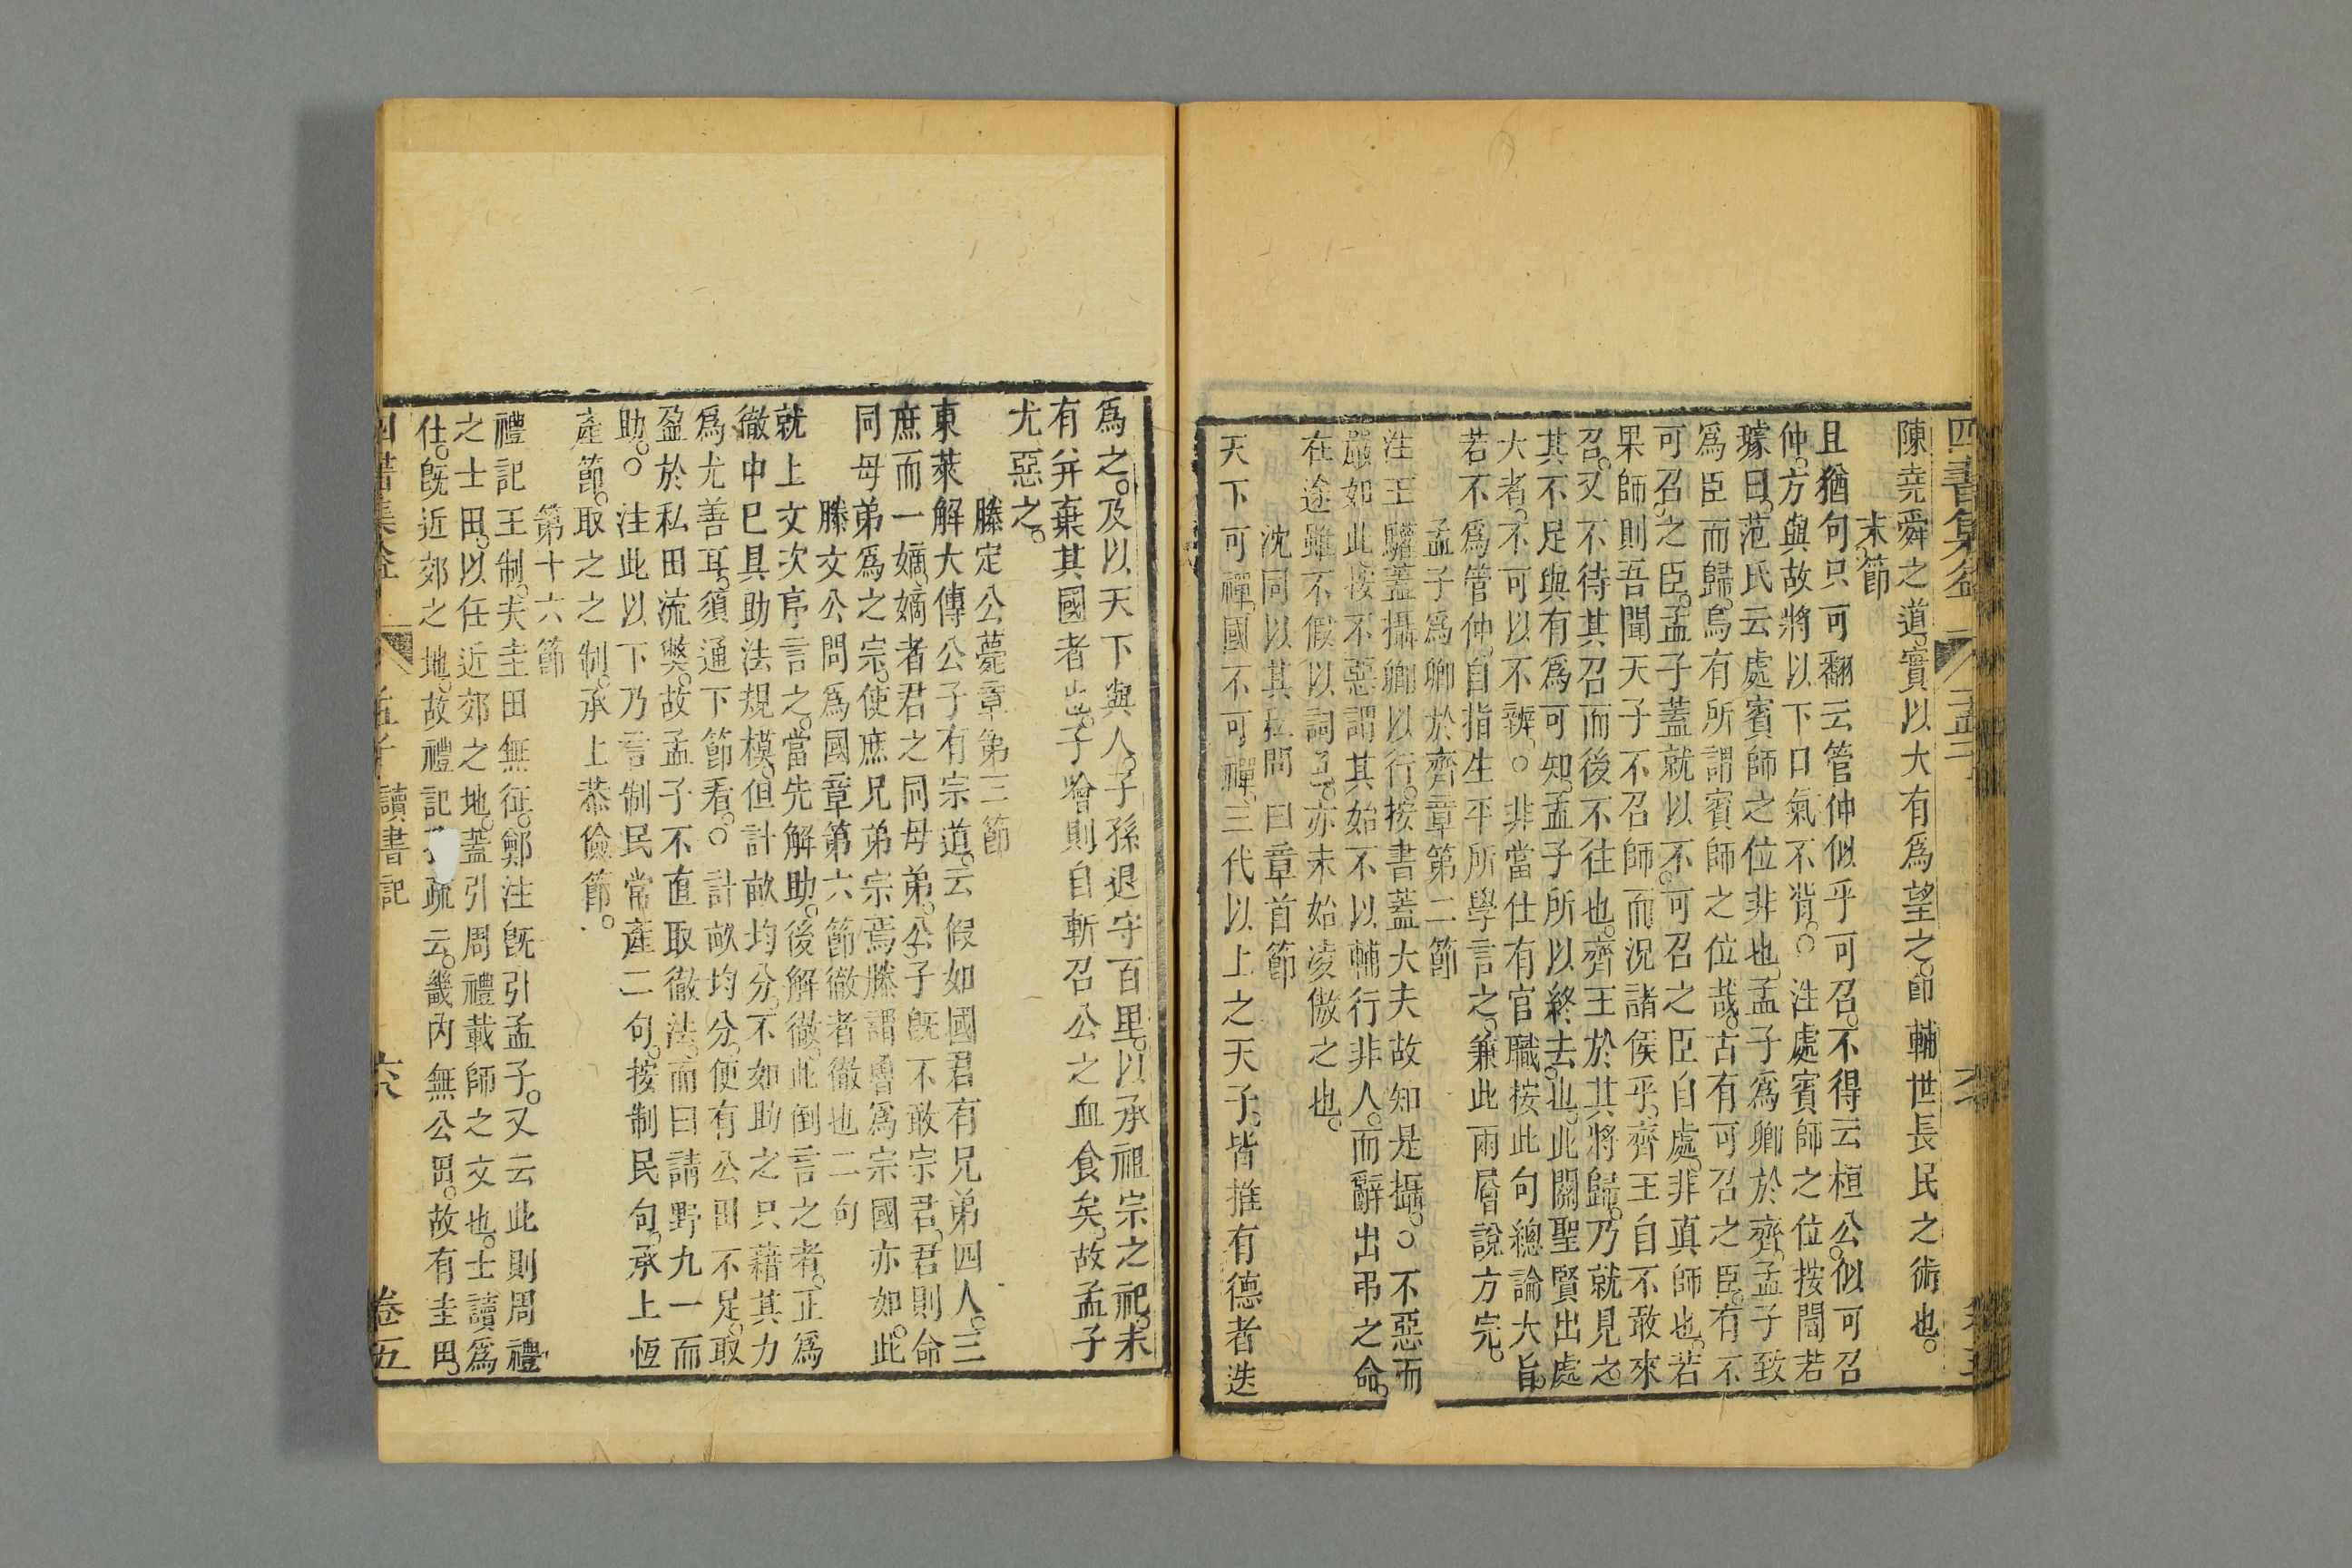 陳堯舜之道。實以大有爲望之。節輔世長民之術也。
末節
且猶句只可翻云管仲似乎可召。不得云桓公。似可召
仲。方與故將以下口氣不背。○注處賓師之位按閻若
璩曰。范氏云處賓師之位非也。孟子爲卿於齊。孟子致
爲臣而歸。烏有所謂賓師之位哉。古有可召之臣。有不
可召之臣。孟子蓋就以不可召之臣自處。非真師也。若
果師則吾聞天子不召師而況諸侯乎。齊王自不敢來
召。又不待其召而後不往也。齊王於其將歸。乃就見之。
其不足與有爲可知。孟子所以終去也。此關聖賢出處
大者。不可以不辨。○非當仕有官職按此句總論大旨。
若不爲管仲。自指生平所學言之。兼此兩層說方完。
孟子爲卿於齊章第二節
注王驩蓋攝卿以行。按書蓋大夫故知是攝。○不惡而
嚴如此按不惡謂其始不以輔行非人。而辭出弔之命。
在途雖不假以詞色。亦未始凌傲之也。
沈同以其私問曰章首節
天下可禪。國不可禪。三代以上之天子。皆推有德者迭
爲之。及以天下與人。子孫退守百里。以承祖宗之祀。未
有并棄其國者也。子噲則自斬召公之血食矣。故孟子
尤惡之。
滕定公薨章第三節
東萊解大傳公子有宗道。云假如國君有兄弟四人。三
庶而一嫡。嫡者君之同母弟。公子旣不敢宗君。君則命
同母弟爲之宗。使庶兄弟宗焉。滕謂魯爲宗國亦如此。
滕文公問爲國章第六節徹者徹也二句
就上文次序言之。當先解助。後解徹。此倒言之者。正爲
徹中已具助法規模。但計畝均分。不如助之只藉其力
爲尤善耳。須通下節看。○計畝均分。便有公田不足。取
盈於私田流弊。故孟子不直取徹法。而曰請野九一而
助。○注此以下乃言制民常產二句。按制民句。承上恆
產節。取之之制。承上恭儉節。
第十六節
禮記王制。夫圭田無征。鄭注旣引孟子。又云此則周禮
之士田。以任近郊之地。蓋引周禮載師之文也。士讀爲
仕。旣近郊之地。故禮記疏云。畿內無公田。故有圭田。
四書集益
孟子 讀書記
六
卷五